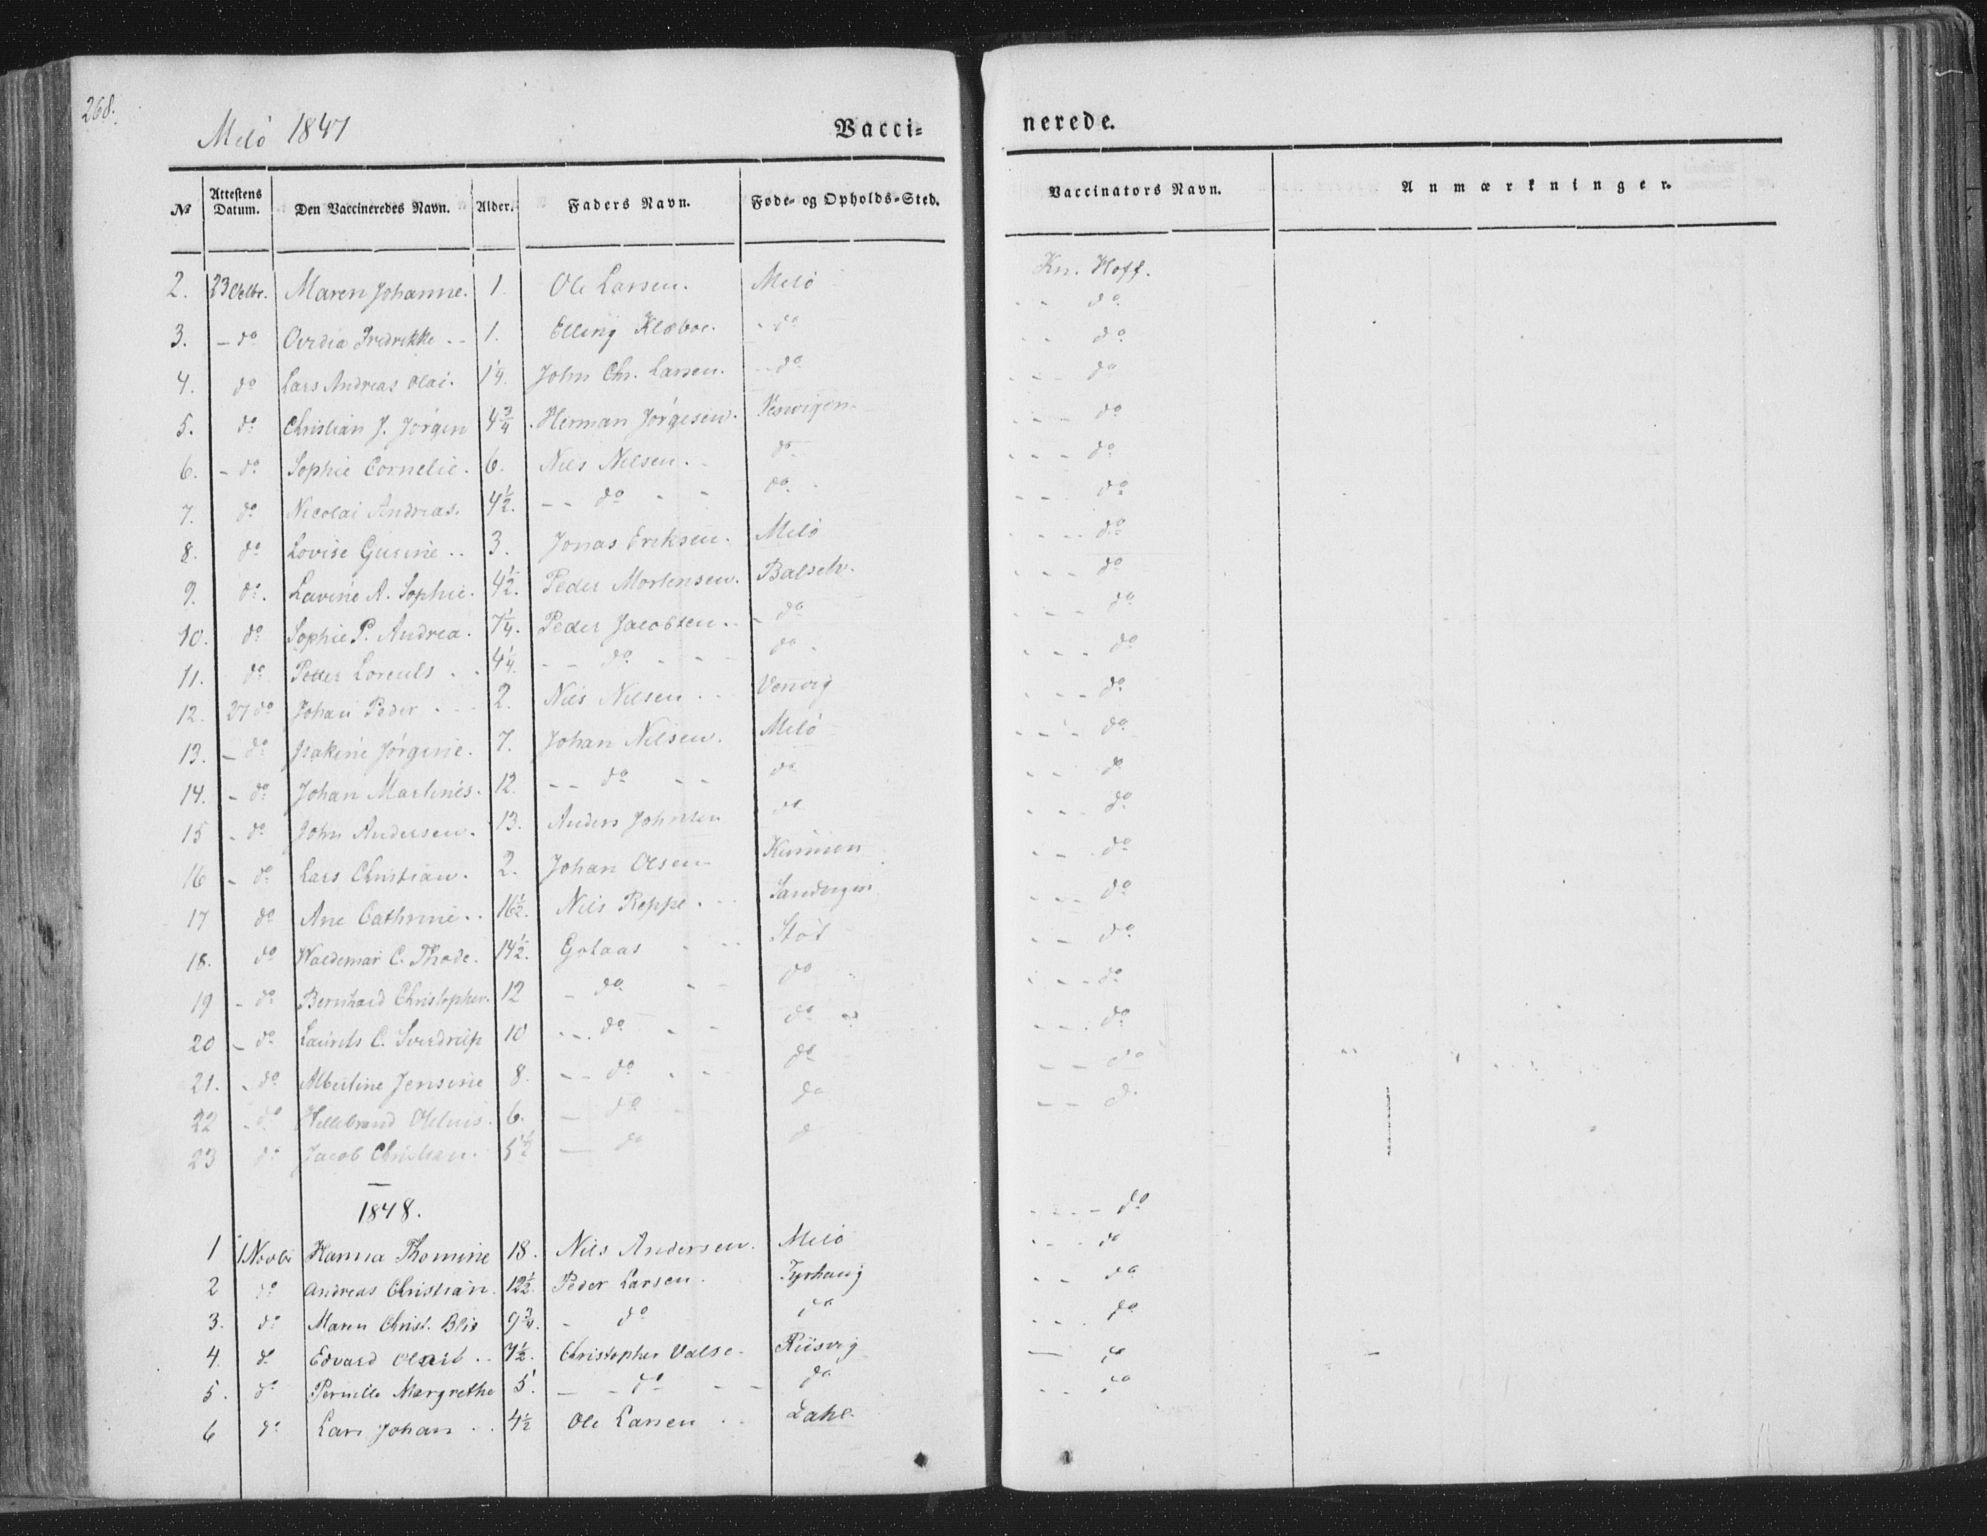 268.
Melö 1847
Vacci-
nerede.
№ Attestens Datum. Den Vaccineredes Navn. Alder. Faders Navn. Føde- og Opholds-Sted. Vaccinators Navn. Anmærkninger.
2. 23 Octbr. Maren Johanne. 1. Ole Larsen. Melö Kn. Hoff.
3. - do Ovedia Fredrikke 1. Elling Klæboe. - do - - do
4. do Lars Andreas Olai. 1¼. John Chr. Larsen. - do - - do
5. do Christian J. Jørgen 4¾ Herman Jørgesen. - - do
6. - do Sophie Cornelie. 6. Nils Nilsen. do - - do
7. do Nicolai Andreas. 4½. - - do - - do. - - - do
8. do Lovise Gurine .. 3. Jonas Eriksen. Melö - - do
9. do. Lavine A. Sophie. 4½. Peder Mortensen. Balselv. - - - do
10. do Sophie P. Andrea. 7¼. Peder Jacobsen. - do - - - do
11. do Peder Lorents . . 4¼. - - do - - do - - - - do
12. 27 do Johan Peder - - 2. Nils Nilsen - - Venvig - - - do
13. - do Isakine Jørgine. 7. Johan Nilsen. Melö - - - do
14. - do Johan Martines. 12. - - do - - do - - do
15 - do John Andersen. 13. Anders Johnsen do - - - do
16 - do Lars Christian. 2. Johan Olsen - - do
17 do Ane Cathrine. . 16½. Nils Reppe. - - - - do
18. do Waldemar C. Thode. 14½. Golaas - - - Stöt - - do
19 - do Bernhard Christopher. 12 - do - - do - - do
20 - do Laurits C. Sverdrup 10 - - do - - do - - do
21. - do Albertine Jensine 8. - - do - - do - - do
22 - do Hellebrand 6. - do - do - - do
23 do Jacob Christian. 5½ - do d
1848.
- - - do
1 1 Novbr Hanna Thomine 18. Nils Andersen. Melö - - do
2 do Andreas Christian. 12½. Peder Larsen. Tyrhaug - - do
3. do Maren Christ. 9¾. - do do - - - do
4. do Edvard . . 7½. Christopher Valse - Riisvig - do
5. do Pernille Margrethe 5. - - do - - do - - do
6 do Lars Johan . . 4½ Ole Larsen . . Dahl